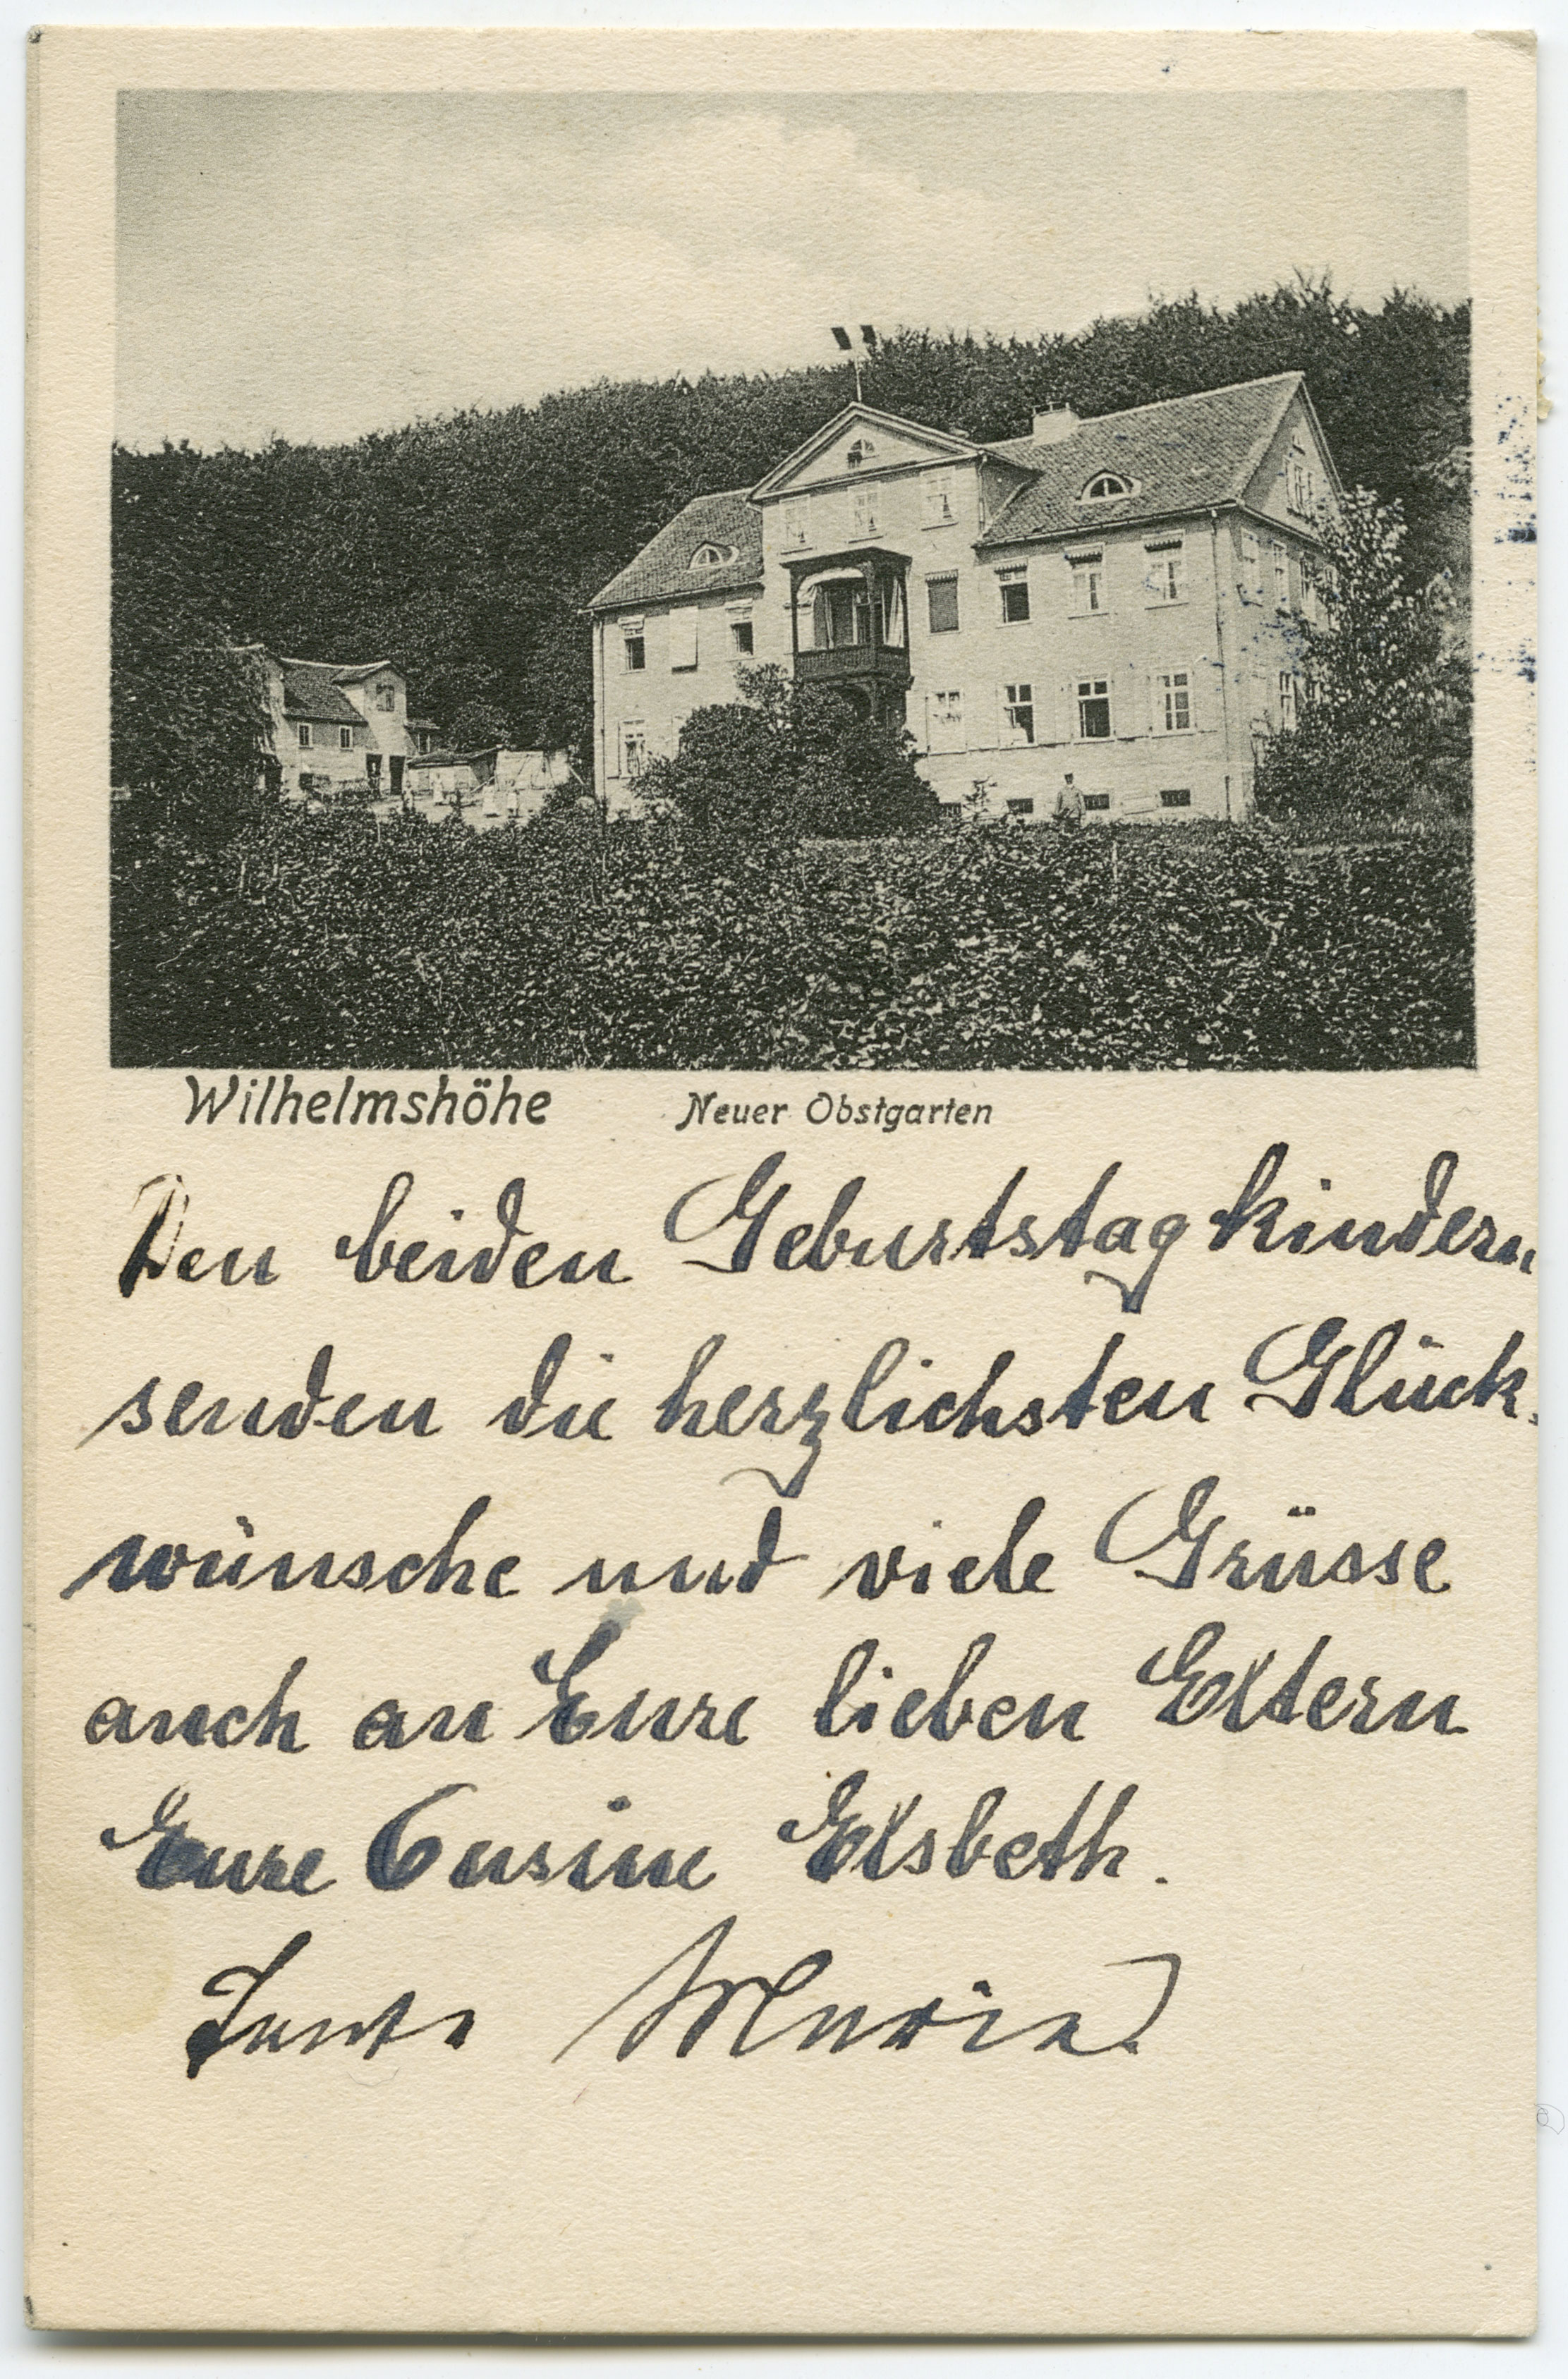 Wilhelmshöhe Neuer Obstgarten
Den beiden Geburtstagkindern
senden die herzlichsten Glück-
wünsche und viele Grüsse
auch an Eure lieben Eltern
Eure Cusine Elsbeth.
Tante Maria.